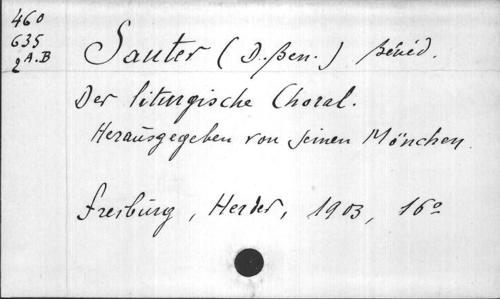 460
635
2 A.B
Sauter (D. Ben.) Bénéd.
Der liturgische Choral.
Herausgegeben von seinen Mönchen.
Freiburg, Herder, 1903, 16°